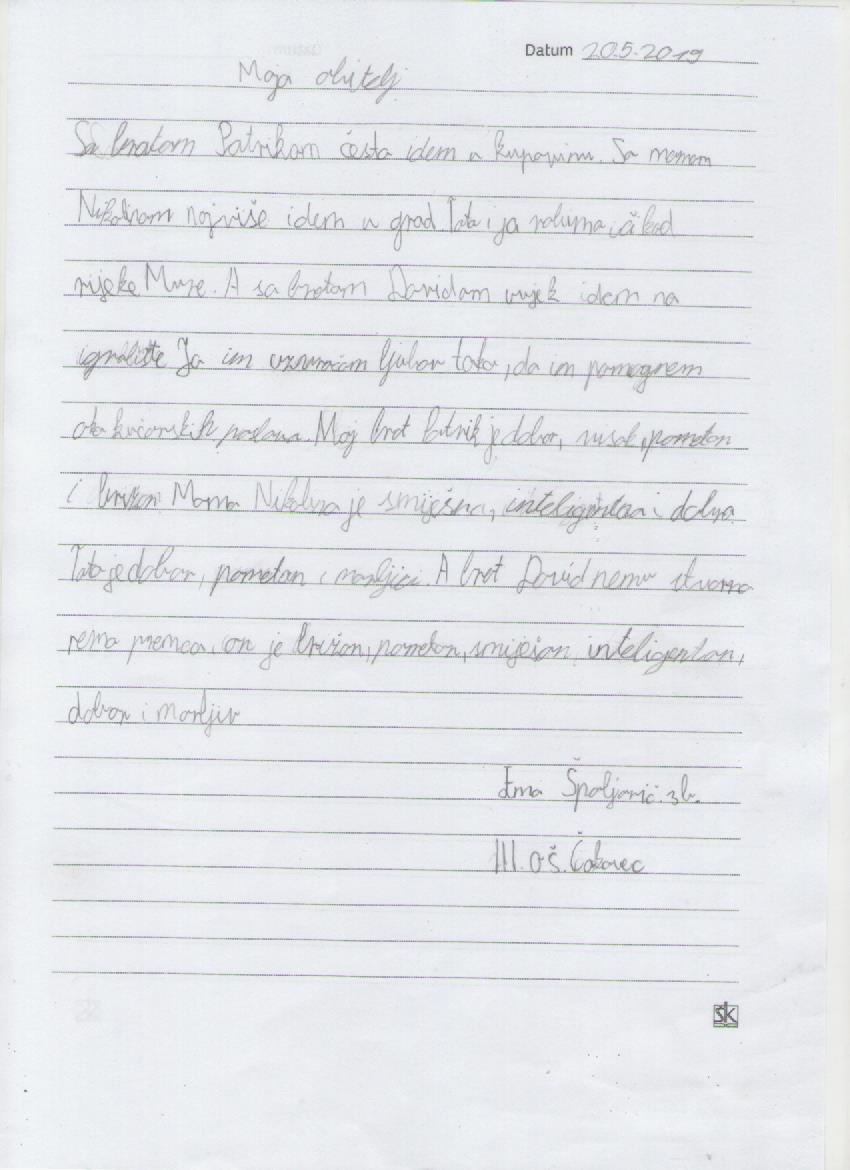 Datum 20.5.2019
Moja obitelj
Sa bratom Patrikom često idem u kupovinu. Sa mamom
Nikolinom najviše idem u grad. Tata i ja rolima kod
rijeke Mure. A sa bratom Davidom uvijek idem na
igralište Ja im uzvraćam ljubav tako, da im pomognem
oko kućanskih poslova. Moj brat Patrik je dobar, visok, pametan
i brižan Mama Nikolina je smiješna, inteligentna i dobra.
Tata je dobar, pametan i marljiv. A brat David nemu stvarno
nema premca, on je brižan, pametan, smiješan, inteligentan,
dobar i marljiv
Ema Špoljarić. 3b.
III. OŠ. Čakovec
šk